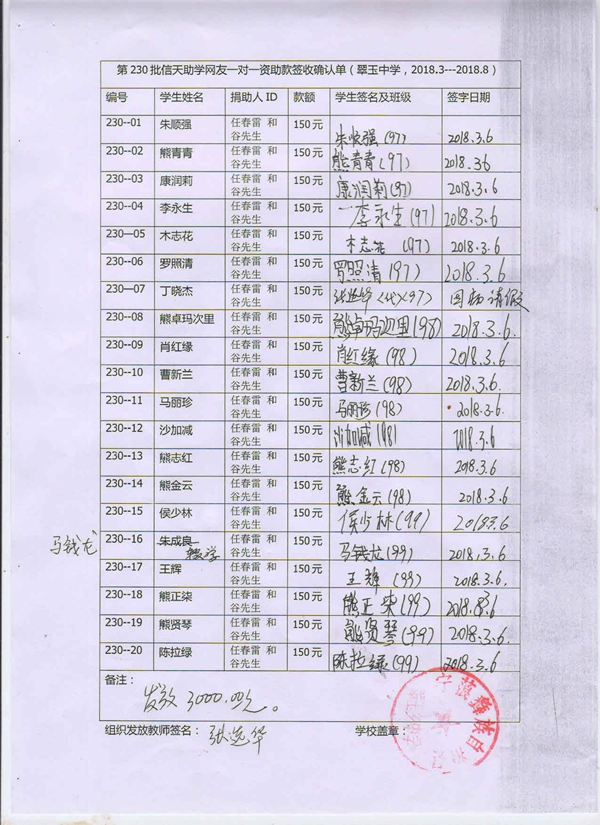 第 230 批信天助学网友一对一资助款签收确认单（翠玉中学，2018.3---2018.8）
编号 学生姓名 捐助人 ID 款额 学生签名及班级 签字日期
230--01 朱顺强 任春雷 和 谷先生 150 元 朱顺强(97) 2018.3.6
230--02 熊青青 任春雷 和 谷先生 150 元 熊青青(97) 2018.36
230--03 康润莉 任春雷 和 谷先生 150 元 康润莉(97) 2018.3.6
230--04 李永生 任春雷 和 谷先生 150 元 李永生(97) 2018.3.6
230—05 木志花 任春雷 和 谷先生 150 元 木志花 (97) 2018.3.6
230--06 罗照清 任春雷 和 谷先生 150 元 罗照清(97) 2018.3.6
230—07 丁晓杰 任春雷 和 谷先生 150 元 张选华(代)(97) 因病请假
230--08 熊卓玛次里 任春雷 和 谷先生 150 元 熊卓玛次里(98) 2018.3.6.
230--09 肖红缘 任春雷 和 谷先生 150 元 肖红缘(98) 2018.3.6
230--10 曹新兰 任春雷 和 谷先生 150 元 曹新兰(98) 2018.3.6.
230--11 马丽珍 任春雷 和 谷先生 150 元 马丽珍(98) 2018.3.6.
230--12 沙加减 任春雷 和 谷先生 150 元 沙加减(98) 2018.3.6
230--13 熊志红 任春雷 和 谷先生 150 元 熊志红(98) 2018.3.6
230--14 熊金云 任春雷 和 谷先生 150 元 熊金云(98) 2018.3.6
230--15 侯少林 任春雷 和 谷先生 150 元 侯少林(99) 2018.3.6
马钱龙 230--16 朱成良 辍学 任春雷 和 谷先生 150 元 马钱龙(99) 2018.3.6
230--17 王辉 任春雷 和 谷先生 150 元 王辉 (99) 2018.3.6.
230--18 熊正柒 任春雷 和 谷先生 150 元 熊正柒(99) 2018.3.6
230--19 熊贤琴 任春雷 和 谷先生 150 元 熊贤琴(99) 2018.3.6
230--20 陈拉绿 任春雷 和 谷先生 150 元 陈拉绿(99) 2018.3.6
备注：
发放 3000.00元。
组织发放教师签名： 张选华 学校盖章：